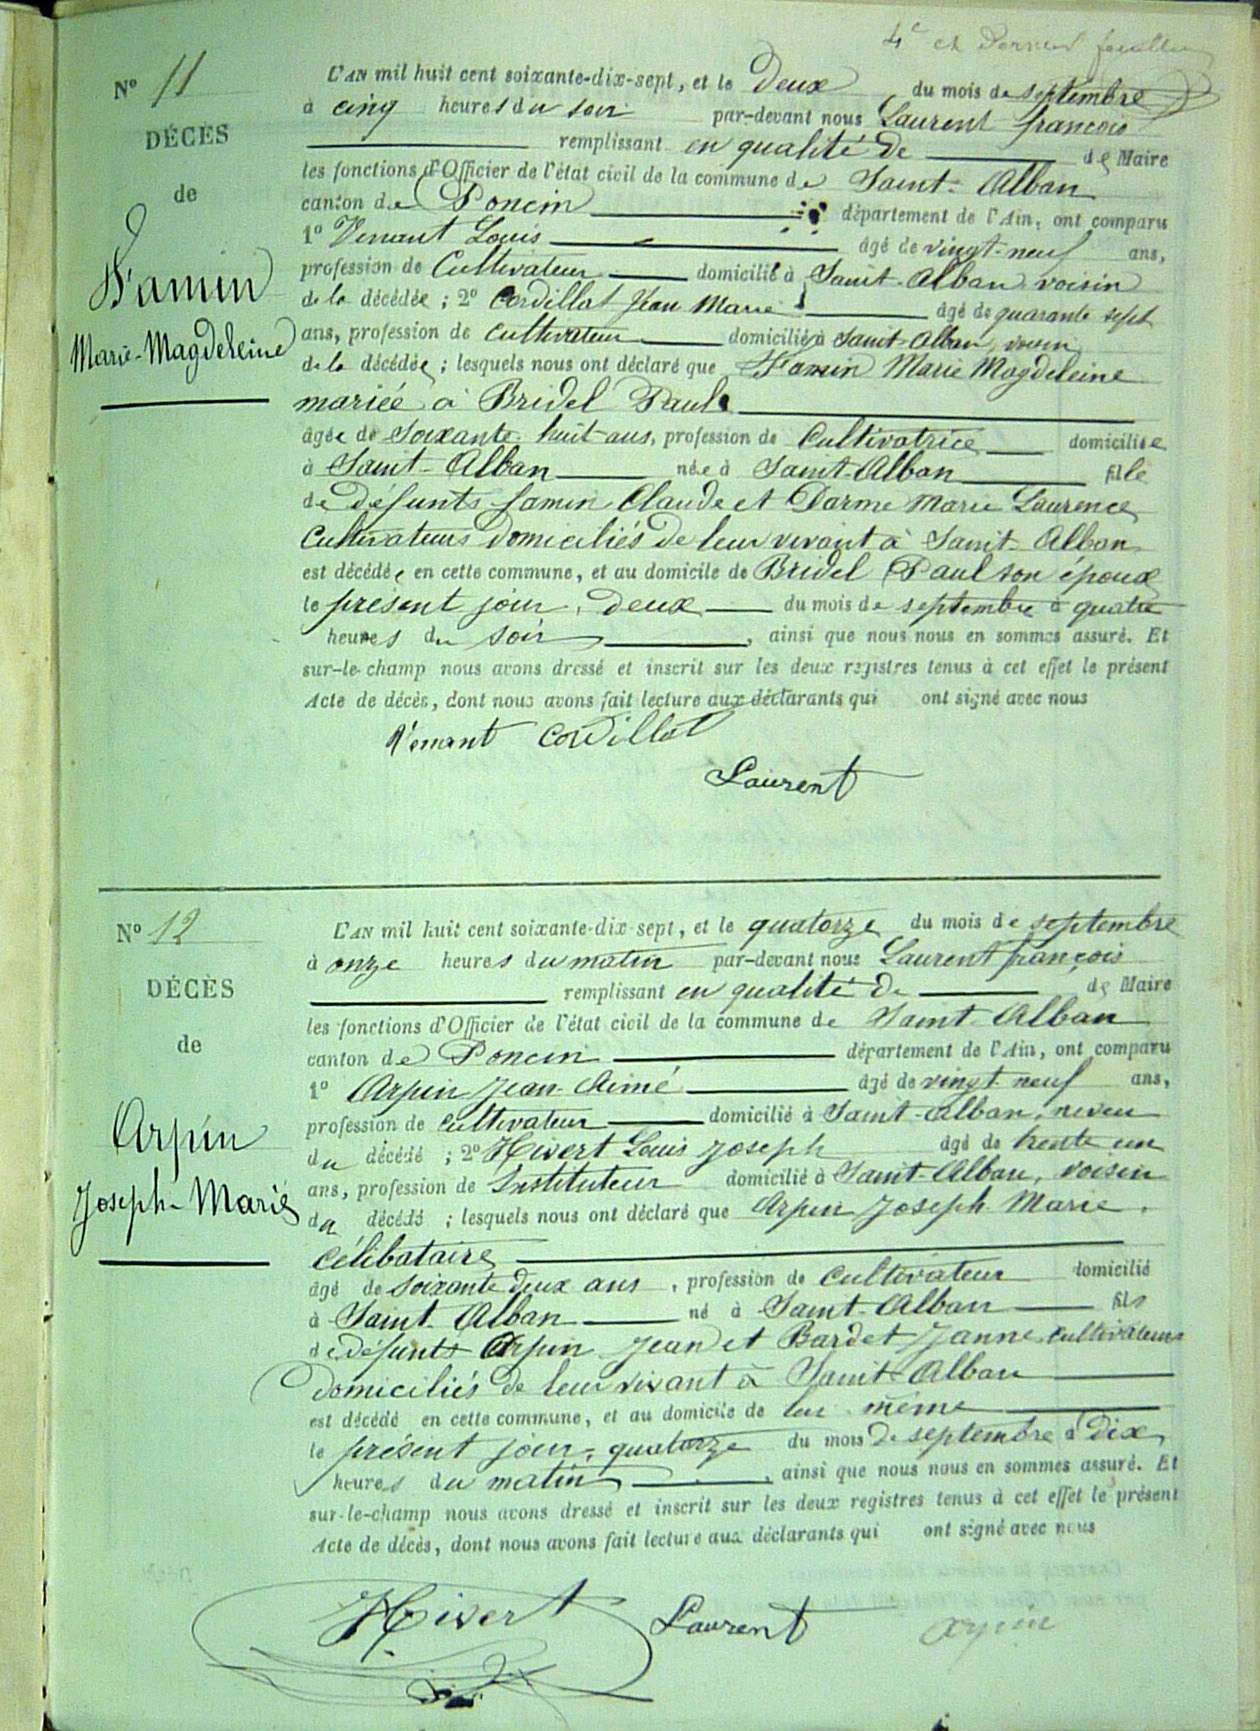 4e et Dernier feuillet
No 11
DÉCÈS
de
Famin
Marie-Magdeleine
L'AN mil huit cent soixante-dix-sept, et le Deux du mois de septembre
à cinq heures du soir par-devant nous Laurent françois
remplissant en qualité de de Maire
les fonctions d'Officier de l'état civil de la commune de Saint-Alban
canton de Poncin département de l'Ain, ont comparu
1o Venant Louis âgé de vingt-neuf ans,
profession de Cultivateur domicilié à Saint-Alban voisin
de la décédée ; 2o Cordillot Jean Marie âgé de quarante sept
ans, profession de cultivateur domicilié à Saint-Alban, voisin
de la décédée ; lesquels nous ont déclaré que Famin Marie Magdeleine
mariée à Bridel Paul
âgée de soixante-huit ans, profession de Cultivatrice domiciliée
à Saint-Alban née à Saint-Alban fille
de défunts famin Claude et Darme Marie Laurence
Cultivateurs domiciliés de leur vivant à Saint-Alban
est décédée en cette commune, et au domicile de Bridel Paul son époux
le présent jour, Deux du mois de septembre à quatre
heures du soir, ainsi que nous nous en sommes assuré. Et
sur-le-champ nous avons dressé et inscrit sur les deux registres tenus à cet effet le présent
Acte de décès, dont nous avons fait lecture aux déclarants qui ont signé avec nous
Venant Cordillot
Laurent
No 12
DÉCÈS
de
Arpin
Joseph-Marie
L'AN mil huit cent soixante-dix-sept, et le quatorze du mois de septembre
à onze heures du matin par-devant nous Laurent françois
remplissant en qualité de de Maire
les fonctions d'Officier de l'état civil de la commune de Saint-Alban
canton de Poncin département de l'Ain, ont comparu
1o Arpin Jean-Aimé âgé de vingt neuf ans,
profession de cultivateur domicilié à Saint-Alban, neveu
du décédé ; 2o Hivert Louis Joseph âgé de trente un
ans, profession de Instituteur domicilié à Saint-Alban, voisin
du décédé ; lesquels nous ont déclaré que Arpin Joseph Marie,
Célibataire
âgé de soixante deux ans, profession de cultivateur domicilié
à Saint-Alban né à Saint-Alban fils
de défunts Arpin Jean et Bardet Janne cultivateurs
domiciliés de leur vivant à Saint-Alban
est décédé en cette commune, et au domicile de lui même
le présent jour, quatorze du mois de septembre à Dix
heures du matin, ainsi que nous nous en sommes assuré. Et
sur-le-champ nous avons dressé et inscrit sur les deux registres tenus à cet effet le présent
Acte de décès, dont nous avons fait lecture aux déclarants qui ont signé avec nous
Hivert Laurent arpin